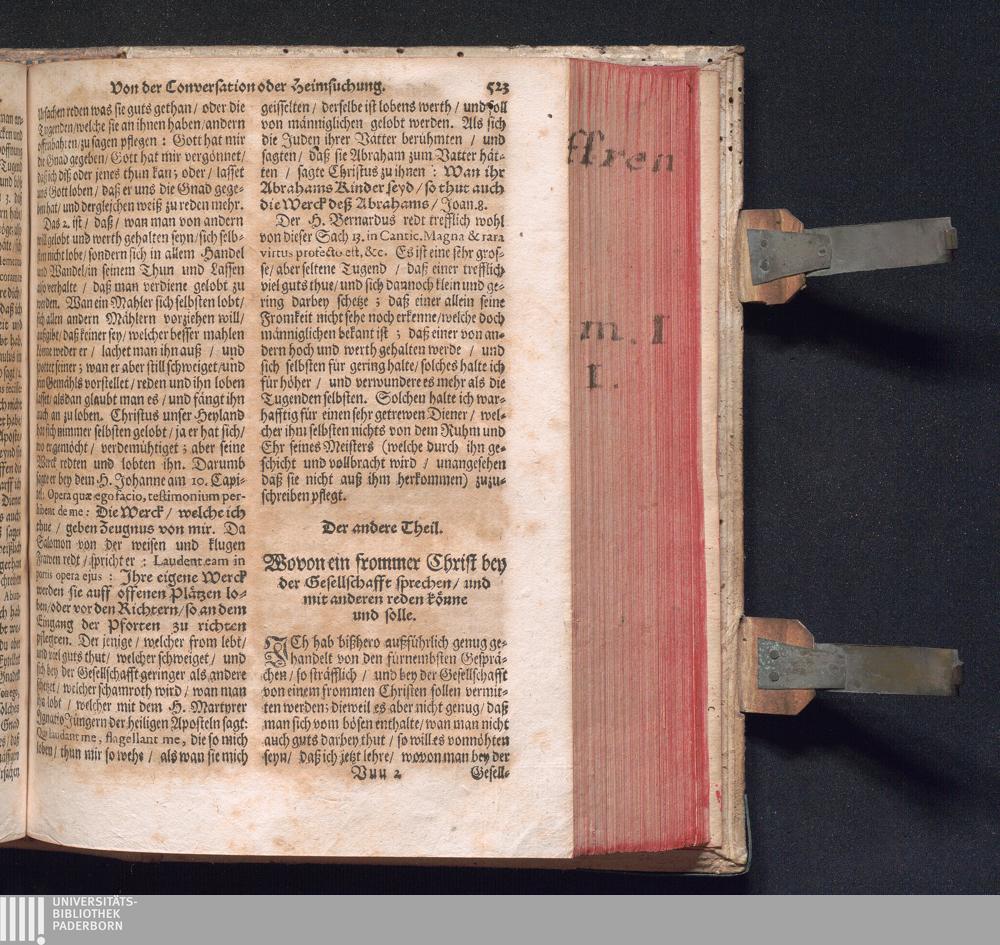 Von der Conversation oder Heimsuchung. 523
reden was sie guts gethan / oder die
Tugenden/welche sie an ihnen haben/andern
zu sagen pflegen : Gott hat mir
die Gnad gegeben/ Gott hat mir vergönnet/
daß ich diß oder jenes thun kan; oder / lasset
uns Gott loben / daß er uns die Gnad gege-
ben hat/ und dergleichen weiß zu reden mehr.
Das 2. ist / daß / wan man von andern
will gelobt und werth gehalten seyn/sich selb-
sten nicht lobe/ sondern sich in allem Handel
und Wandel/in seinem Thun und Lassen
also verhalte / daß man verdiene gelobt zu
werden. Wan ein Mahler sich selbsten lobt/
sich allen andern Mählern vorziehen will/
außgibt/ daß keiner sey/ welcher besser mahlen
könne weder er / lachet man ihn auß / und
spottet seiner ; wan er aber still schweiget/und
sein Gemähls vorstellet / reden und ihn loben
lasset/ alsdan glaubt man es / und fängt ihn
auch an zu loben. Christus unser Heyland
hat sich nimmer selbsten gelobt / ja er hat sich/
wo er gemöcht / verdemühtiget ; aber seine
Werck redten und lobten ihn. Darumb
sagte er bey dem H. Johanne am 10. Capi-
tel: Opera quæ ego facio, testimonium per-
hibent de me : Die Werck / welche ich
thue / geben Zeugnus von mir. Da
Salomon von der weisen und klugen
Frawen redt / spricht er : Laudent eam in
portis opera ejus : Ihre eigene Werck
werden sie auff offenen Plätzen lo-
ben/oder vor den Richtern/ so an dem
Eingang der Pforten zu richten
pflegten. Der jenige / welcher from lebt/
und viel guts thut / welcher schweiget / und
sich bey der Gesellschafft geringer als andere
schetzet / welcher schamroth wird / wan man
ihn lobt / welcher mit dem H. Martyrer
Ignatio Jüngern der heiligen Aposteln sagt:
Qui laudant me, flagellant me, die so mich
loben / thun mir so wehe / als wan sie mich
geisselten / derselbe ist lobens werth / und soll
von männiglichen gelobt werden. Als sich
die Juden ihrer Vätter berühmten / und
sagten / daß sie Abraham zum Vatter hät-
ten / sagte Christus zu ihnen : Wan ihr
Abrahams Kinder seyd / so thut auch
die Werck deß Abrahams / Joan. 8.
Der H. Bernardus redt trefflich wohl
von dieser Sach 13. in Cantic. Magna & rara
virtus profecto est, &c. Es ist eine sehr gros-
se/ aber seltene Tugend / daß einer trefflich
viel guts thue/ und sich dannoch klein und ge-
ring darbey schetze ; daß einer allein seine
Fromkeit nicht sehe noch erkenne/welche doch
männiglichen bekant ist ; daß einer von an-
dern hoch und werth gehalten werde / und
sich selbsten für gering halte/ solches halte ich
für höher / und verwundere es mehr als die
Tugenden selbsten. Solchen halte ich war-
hafftig für einen sehr getrewen Diener / wel-
cher ihm selbsten nichts von dem Ruhm und
Ehr seines Meisters (welche durch ihn ge-
schicht und vollbracht wird / unangesehen
daß sie nicht auß ihm herkommen) zuzu-
schreiben pflegt.
Der andere Theil.
Wovon ein frommer Christ bey
der Gesellschafft sprechen / und
mit anderen reden könne
und solle.
ICh hab bißhero außführlich genug ge-
handelt von den fürnembsten Gesprä-
chen / so sträfflich / und bey der Gesellschafft
von einem frommen Christen sollen vermit-
ten werden; dieweil es aber nicht genug/ daß
man sich vom bösen enthalte/ wan man nicht
auch guts darbey thut / so will es vonnöhten
seyn / daß ich jetzt lehre / wovon man bey der
Vuu 2 Gesell-
ffren
m. I
I.
UNIVERSITÄTS-
BIBLIOTHEK
PADERBORN